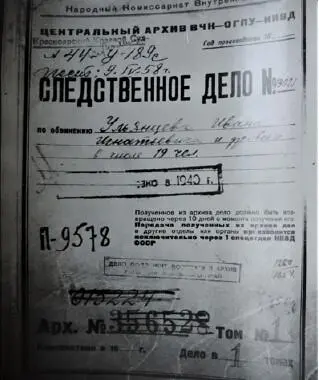 Народный Комиссариат Внутрен
ЦЕНТРАЛЬНЫЙ АРХИВ ВЧК—ОГПУ—НКВД
Красноярский Краевой Суд
Год производства 19
СЛЕДСТВЕННОЕ ДЕЛО №
по обвинению Ульянцева Ивана
Игнатьевича и др. всего
в числе 19 чел.
в 1940 г.
Полученное из архива дело должно быть воз-
вращено через 10 дней с момента получения его.
Передача полученных из архива дел
в другие отделы или органы производится
исключительно через 1 спецотдел НКВД
СССР
П-9578
ДЕЛО ПОДЛЕЖИТ ВОЗВРАТУ В АРХИВ
Арх. № 356528 Том № 1
Дело в 1 томах